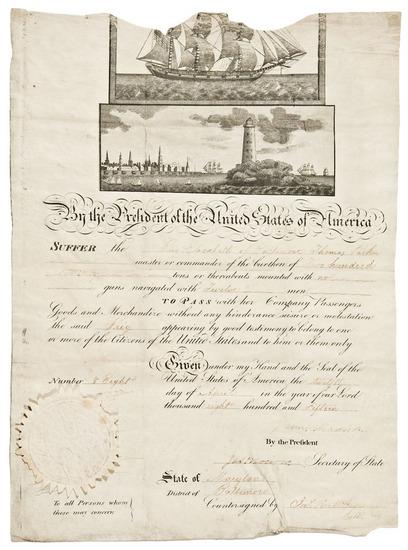 By the President of the United States of America
SUFFER the Elizabeth of Baltimore Thomas
master or commander of the burthen of hundred
tons or thereabouts mounted with no
guns navigated with Twelve men
TO PASS with her Company Passengers
Goods and Merchandize without any hinderance seisure or molestation
the said Brig appearing by good testimony to belong to one
or more of the Citizens of the United States and to him or them only
Given under my Hand and the Seal of the
Number 8 Eight United States of America the
day of in the year of our Lord
thousand eight hundred and fifteen
James Madison
By the President
Jas Monroe Secretary of State
State of Maryland
District of Baltimore
To all Persons whom Countersigned by
these may concern